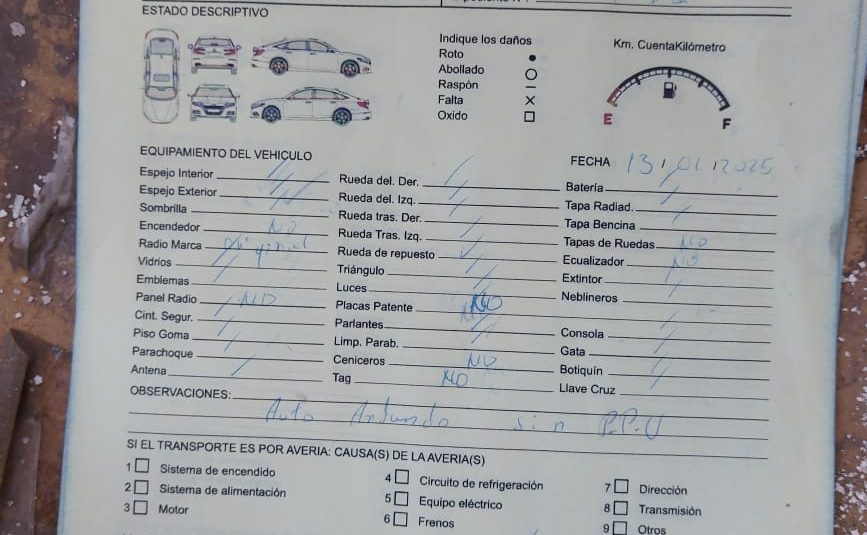 ESTADO DESCRIPTIVO
Indique los daños
Roto
Abollado
Raspón
Falta
Oxido
Km. CuentaKilómetro
E F
EQUIPAMIENTO DEL VEHICULO
FECHA 13/01/2025
Espejo Interior
Espejo Exterior
Sombrilla
Encendedor NO
Radio Marca original
Vidrios
Emblemas
Panel Radio NO
Cint. Segur.
Piso Goma
Parachoque
Antena
Rueda del. Der.
Rueda del. Izq.
Rueda tras. Der.
Rueda Tras. Izq.
Rueda de repuesto
Triángulo
Luces
Placas Patente NO
Parlantes
Limp. Parab.
Ceniceros NO
Tag NO
Batería
Tapa Radiad.
Tapa Bencina
Tapas de Ruedas NO
Ecualizador NO
Extintor
Neblineros
Consola
Gata
Botiquín
Llave Cruz
OBSERVACIONES:
Auto sin P.P.U
SI EL TRANSPORTE ES POR AVERIA: CAUSA(S) DE LA AVERIA(S)
1 Sistema de encendido
2 Sistema de alimentación
3 Motor
4 Circuito de refrigeración
5 Equipo eléctrico
6 Frenos
7 Dirección
8 Transmisión
9 Otros